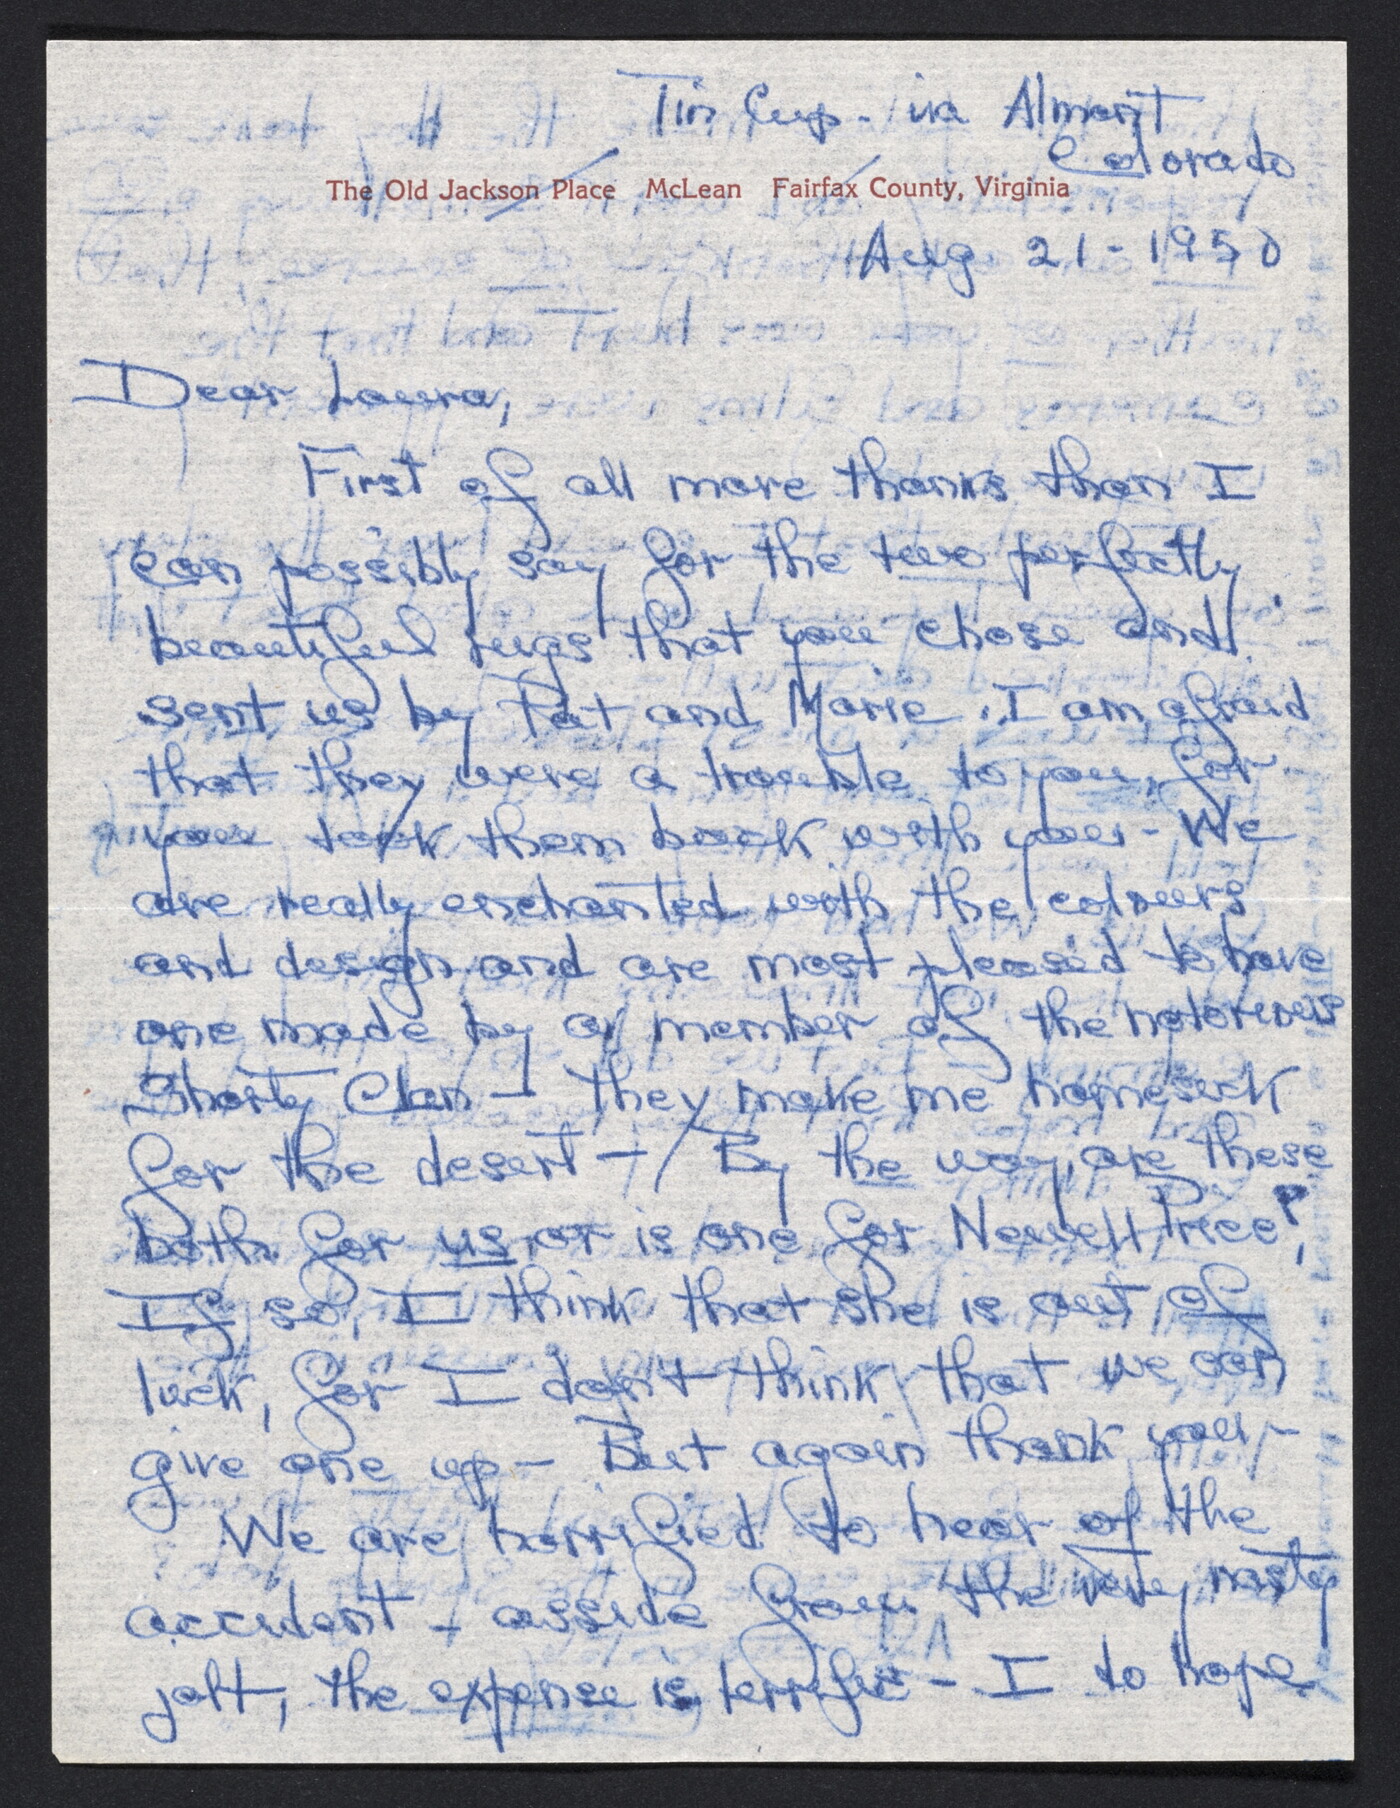 Tin Cup - via Almont
Colorado
The Old Jackson Place McLean Fairfax County, Virginia
Aug 21 - 1950
Dear Laura,
First of all more thanks than I
can possibly say for the two perfectly
beautiful rugs that you chose and
sent us by Pat and Marie. I am afraid
that they were a trouble to you, for
you took them back with you - We
are really enchanted with the colours
and design and are most pleased to have
one made by a member of the notorious
Shorty Clan - They make me homesick
for the desert - By the way, are these
both for us or is one for Newell Price?
If so, I think that she is out of
luck, for I don't think that we can
give one up - But again thank you -
We are horrified to hear of the
accident - asside from the very nasty
jolt, the expense is terrific - I to hope